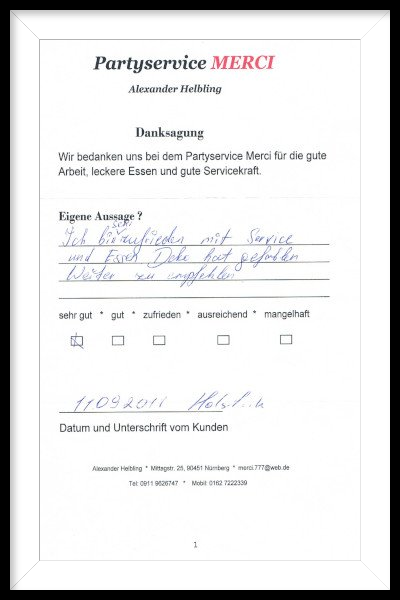 Partyservice MERCI
Alexander Helbling
Danksagung
Wir bedanken uns bei dem Partyservice Merci für die gute
Arbeit, leckere Essen und gute Servicekraft.
Eigene Aussage ?
sehr
Ich bin zufrieden mit Service
und Essen Deko hat gefahlen
Weiter zu empfehlen
sehr gut * gut * zufrieden * ausreichend * mangelhaft
11.09.2011
Datum und Unterschrift vom Kunden
Alexander Helbling * Mittagstr. 25, 90451 Nürnberg * merci.777@web.de
Tel: 0911 9626747 * Mobil: 0162 7222339
1